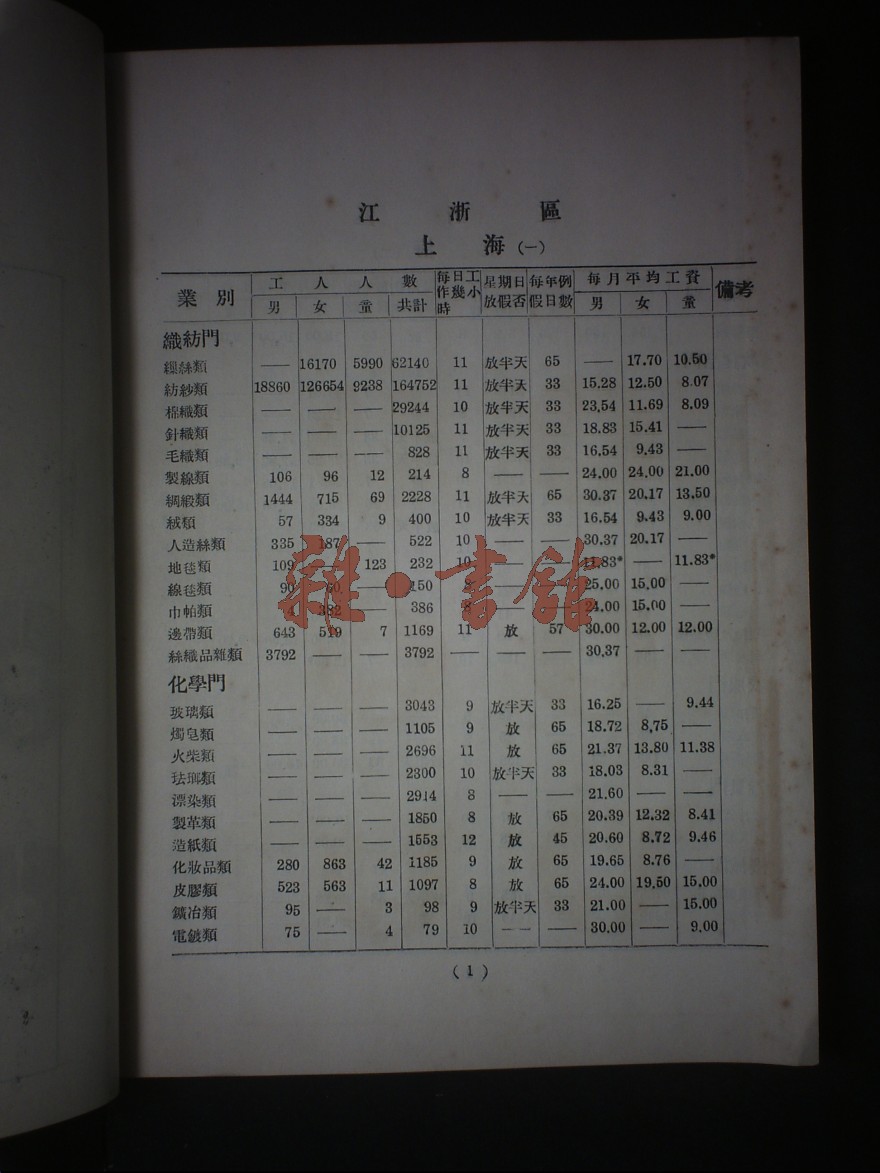 江 浙 區
上 海 (一)
業 別 工 人 人 數 每日工作幾小時 星期日放假否 每年例假日數 每月平均工資 備考
男 女 童 共計 男 女 童
織紡門
繅絲類 —— 16170 5990 62140 11 放半天 65 —— 17.70 10.50
紡紗類 18860 126654 9238 164752 11 放半天 33 15.28 12.50 8.07
棉織類 —— —— —— 29244 10 放半天 33 23.54 11.69 8.09
針織類 —— —— —— 10125 11 放半天 33 18.83 15.41 ——
毛織類 —— —— —— 828 11 放半天 33 16.54 9.43 ——
製線類 106 96 12 214 8 —— —— 24.00 24.00 21.00
綢緞類 1444 715 69 2228 11 放半天 65 30.37 20.17 13.50
絨類 57 334 9 400 10 放半天 33 16.54 9.43 9.00
人造絲類 335 187 —— 522 10 —— —— 30.37 20.17 ——
地毯類 109 —— 123 232 10 —— —— 11.83* —— 11.83*
線毯類 90 60 —— 150 8 —— —— 25.00 15.00 ——
巾帕類 4 382 —— 386 8 —— —— 24.00 15.00 ——
邊帶類 643 519 7 1169 11 放 57 30.00 12.00 12.00
絲織品雜類 3792 —— —— 3792 —— —— —— 30.37 —— ——
化學門
玻璃類 —— —— —— 3043 9 放半天 33 16.25 —— 9.44
燭皂類 —— —— —— 1105 9 放 65 18.72 8.75 ——
火柴類 —— —— —— 2696 11 放 65 21.37 13.80 11.38
琺瑯類 —— —— —— 2300 10 放半天 33 18.03 8.31 ——
漂染類 —— —— —— 2914 8 —— —— 21.60 —— ——
製革類 —— —— —— 1850 8 放 65 20.39 12.32 8.41
造紙類 —— —— —— 1553 12 放 45 20.60 8.72 9.46
化妝品類 280 863 42 1185 9 放 65 19.65 8.76 ——
皮膠類 523 563 11 1097 8 放 65 24.00 19.50 15.00
鑛冶類 95 —— 3 98 9 放半天 33 21.00 —— 15.00
電鍍類 75 —— 4 79 10 —— —— 30.00 —— 9.00
(1)
雜·書館